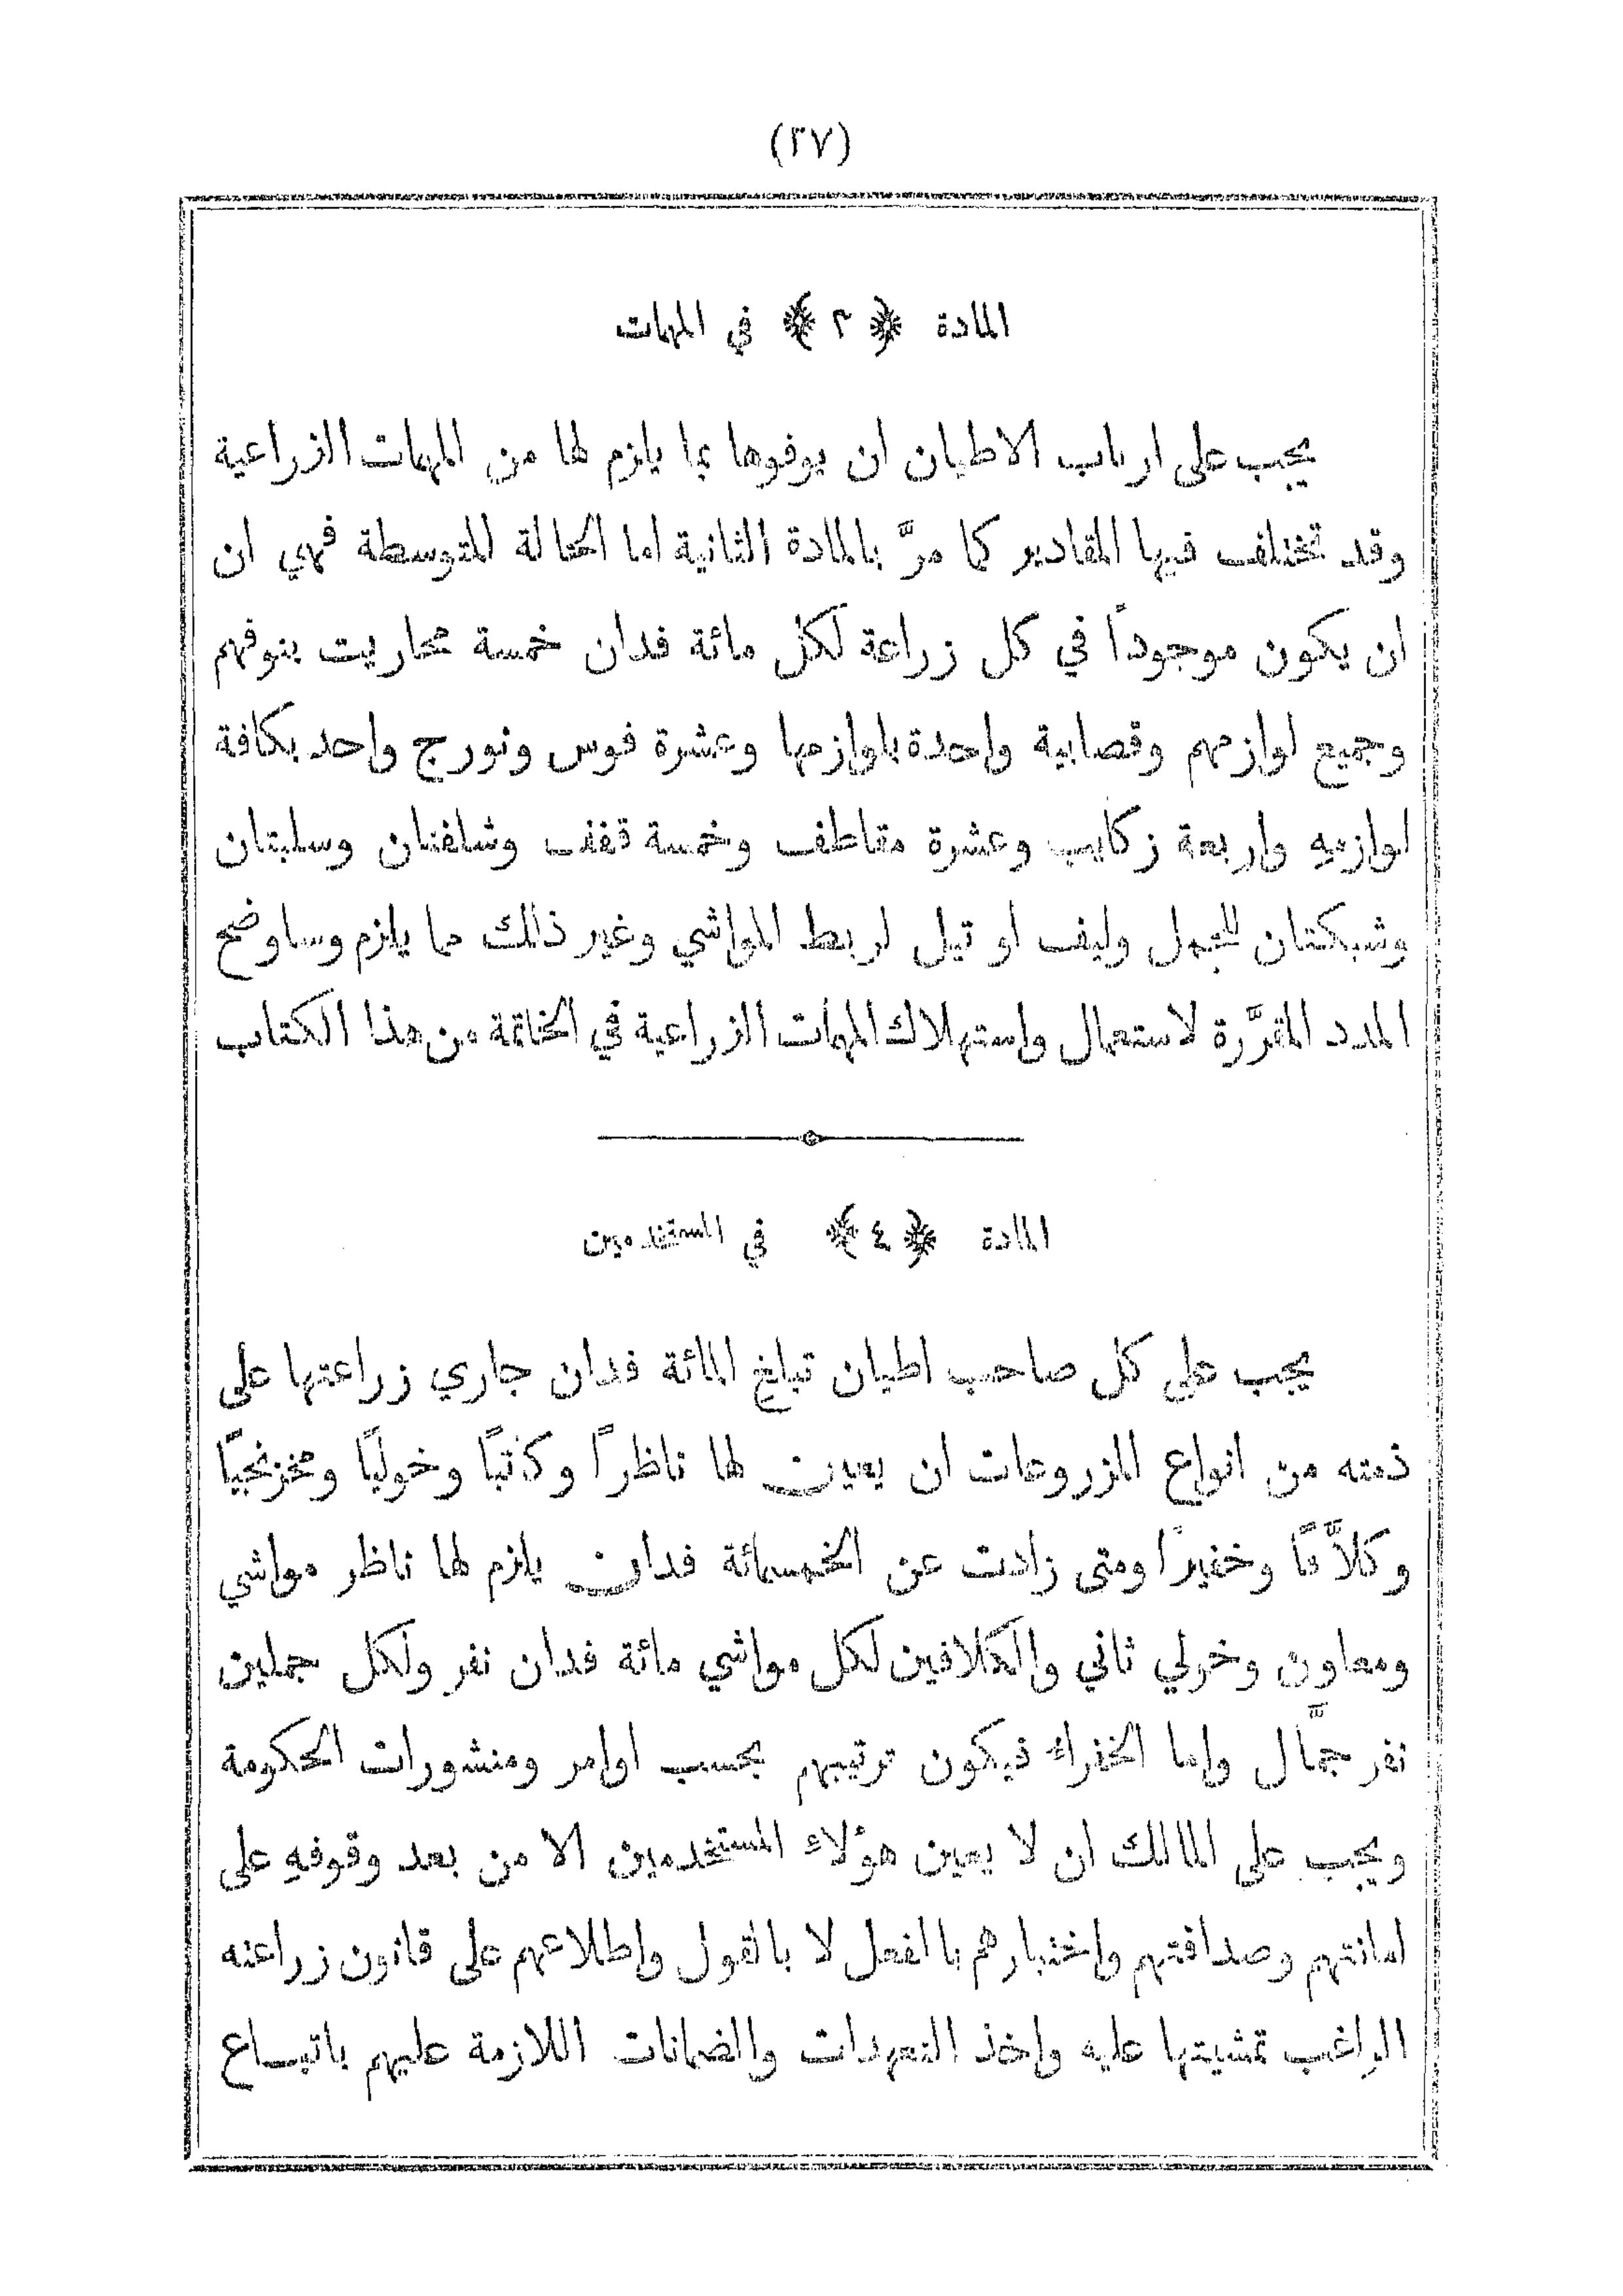 (٢٧)
المادة ﴿ ٣ ﴾ في المهمات
يجب على ارباب الاطيان ان يوفوها بما يلزم لها من المهمات الزراعية
وقد تختلف فيها المقادير كما مرَّ بالمادة الثانية اما الحالة المتوسطة فهي ان
ان يكون موجوداً في كل زراعة لكل مائة فدان خمسة محاريث بنوفهم
وجميع لوازمهم وقصابية واحدة بلوازمها وعشرة فوس ونورج واحد بكافة
لوازمهِ واربعة زكايب وعشرة مقاطف وخمسة قفف وشلفتان وسلبتان
وشبكتان للجمل وليف او تيل لربط المواشي وغير ذلك مما يلزم وساوضح
المدد المقرَّرة لاستعمال واستهلاك المهمات الزراعية في الخاتمة من هذا الكتاب
المادة ﴿ ٤ ﴾ في المستخدمين
يجب على كل صاحب اطيان تبلغ المائة فدان جاري زراعتها على
ذمته من انواع المزروعات ان يعين لها ناظراً وكاتبًا وخوليًا ومخزنجيًا
وكلاَّفًا وخفيرًا ومتى زادت عن الخمسمائة فدان يلزم لها ناظر مواشي
ومعاون وخولي ثاني والكلافين لكل مواشي مائة فدان نفر ولكل جملين
نفر جمَّال واما الخفراء فيكون ترتيبهم بحسب اوامر ومنشورات الحكومة
ويجب على المالك ان لا يعين هؤلاء المستخدمين الا من بعد وقوفهِ على
امانتهم وصداقتهم واختبارهم بالفعل لا بالقول واطلاعهم على قانون زراعته
الراغب تمشيتها عليه واخذ التعهدات والضمانات اللازمة عليهم باتباع